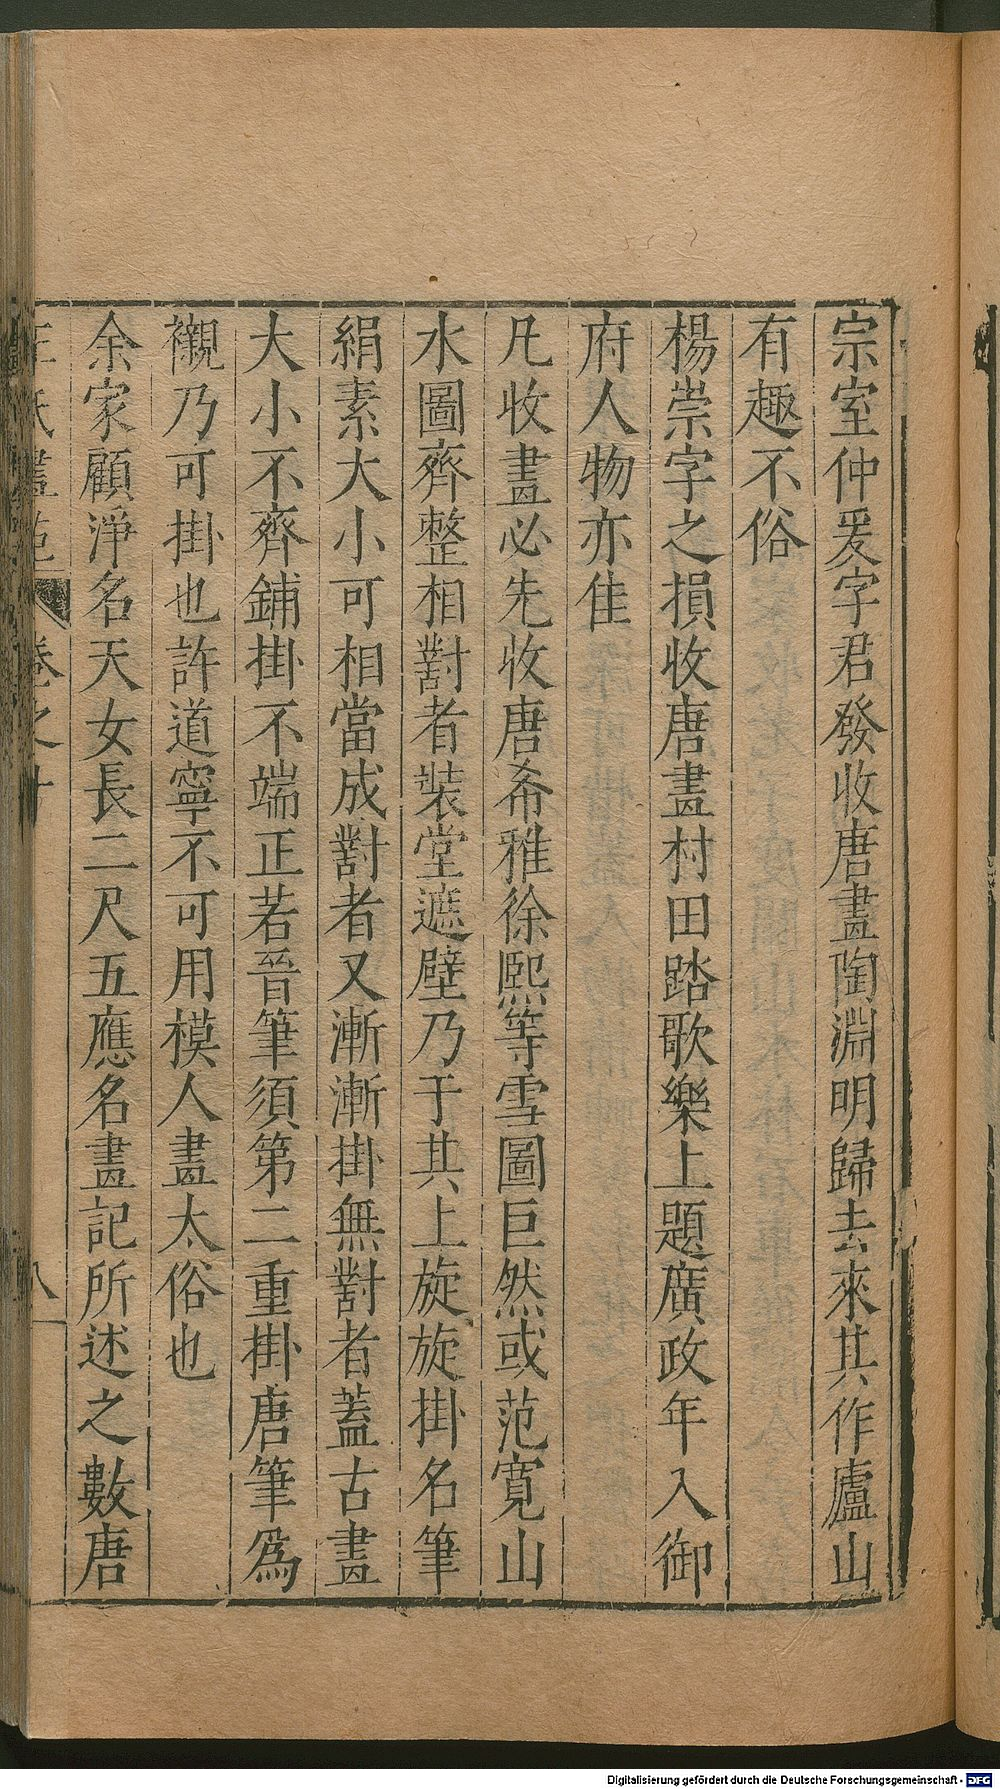 宗室仲爰字君發收唐畫陶淵明歸去來其作廬山
有趣不俗
楊崇字之損收唐畫村田踏歌樂上題廣政年入御
府人物亦佳
凡收畫必先收唐希雅徐熙等雪圖巨然或范寬山
水圖齊整相對者裝堂遮壁乃于其上旋旋掛名筆
絹素大小可相當成對者又漸漸掛無對者蓋古畫
大小不齊鋪掛不端正若晉筆須第二重掛唐筆爲
襯乃可掛也許道寧不可用模人畫太俗也
余家顧淨名天女長二尺五應名畫記所述之數唐
王氏畫苑 卷之十 八
Digitalisierung gefördert durch die Deutsche Forschungsgemeinschaft - DFG